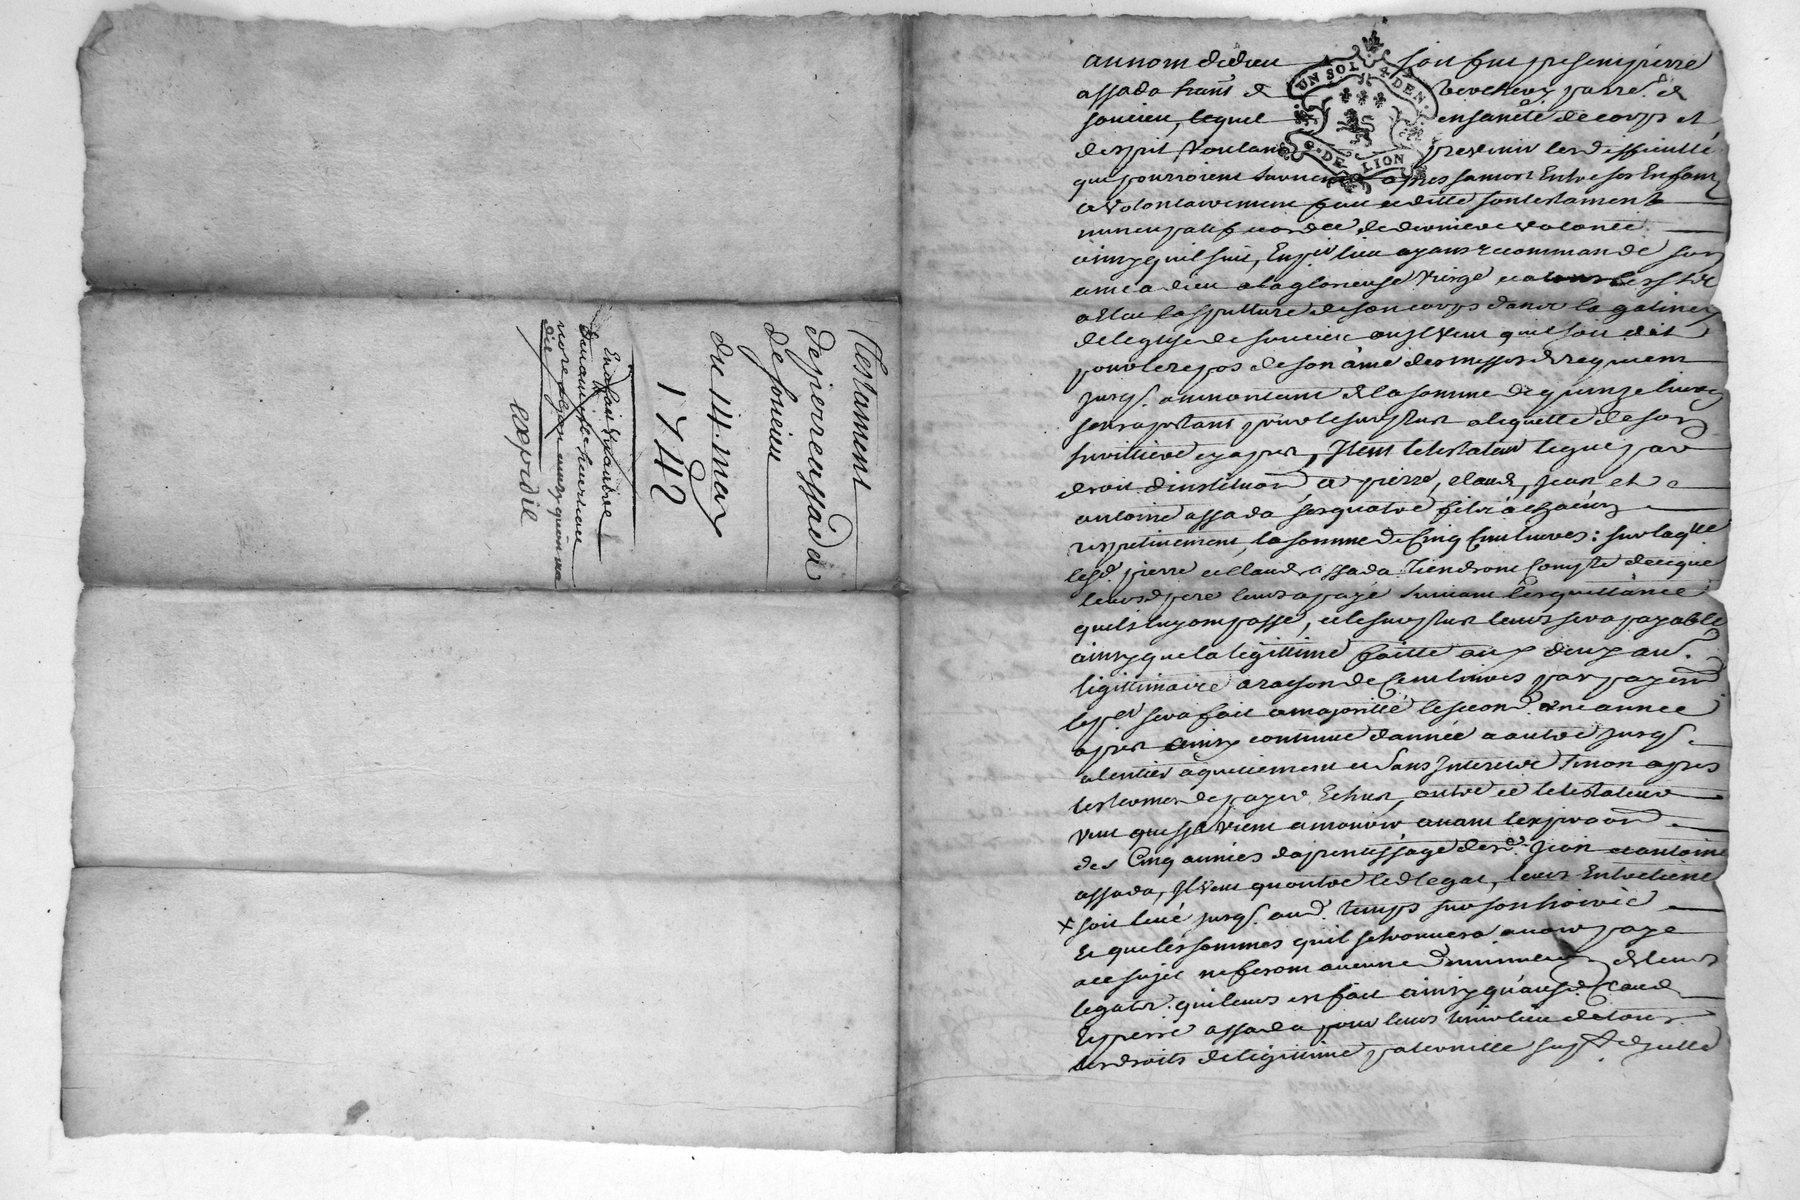 Testament
de pierre assada
de soucieu
du 14. may
1742
expedié
au nom de dieu soit fut present pierre
assada hant de verchery parr. de
soucieu, lequel en santé de corps et
desprit voulant prevenir les difficulté
que pourroient survenir apres sa mort Entre ses Enfans
a volontairement fait et ditté son testament
nuncupatif et ordce de derniere volonté
ainsy quil suit, En pr lieu ayant recommandé son
ame a dieu a la glorieuse vierge et a tous les sts
a Elue la spulture de son corps dans
de leglise de soucieu ou Il veut quil soit dit
pour le repos de son âme des messes de requiem
jusq. au montant de la somme de quinze livres
sen raportant pour le surplus a
heritiere cy apres, Item le testateur legue par
droit dinstituon a pierre, claude, jean et
antoine assada ses quatre fils à chacun
respectivement, la somme de Cinq Cent livres: sur laqlle
lesd. pierre et Claude assada tiendront Compte de ce que
leurd pere leurs a payé suivant les quittance
quils luy ont passé, et le surplus leurs sera payable
ainsy que la legittime faitte aux deux au.
legittimaire a raison de Cent livres par payemt
le per sera fait a majorité le second une année
apres ainsy continue dannée a autre jusq.
a lentier aquittement et sans Interest sinon apres
les termes de payer Echus, outre ce le testateur
veut que sil vient a mourir avant lexpiraon
des Cinq années daprentissage desd. jean et antoine
assada, Il veut quoutre led legat, leurs Entretiene
x soit levé jusq. aud. temps sur son hoirie
Et que les sommes quil se trouvera avoir payé
a ce sujet ne feront aucune diminuon de leurs
legats. qui leurs est fait ainsy quausd. Claude
Et pierre assada pour leurs tenir lieu de tous
les droits de legittime paternelle